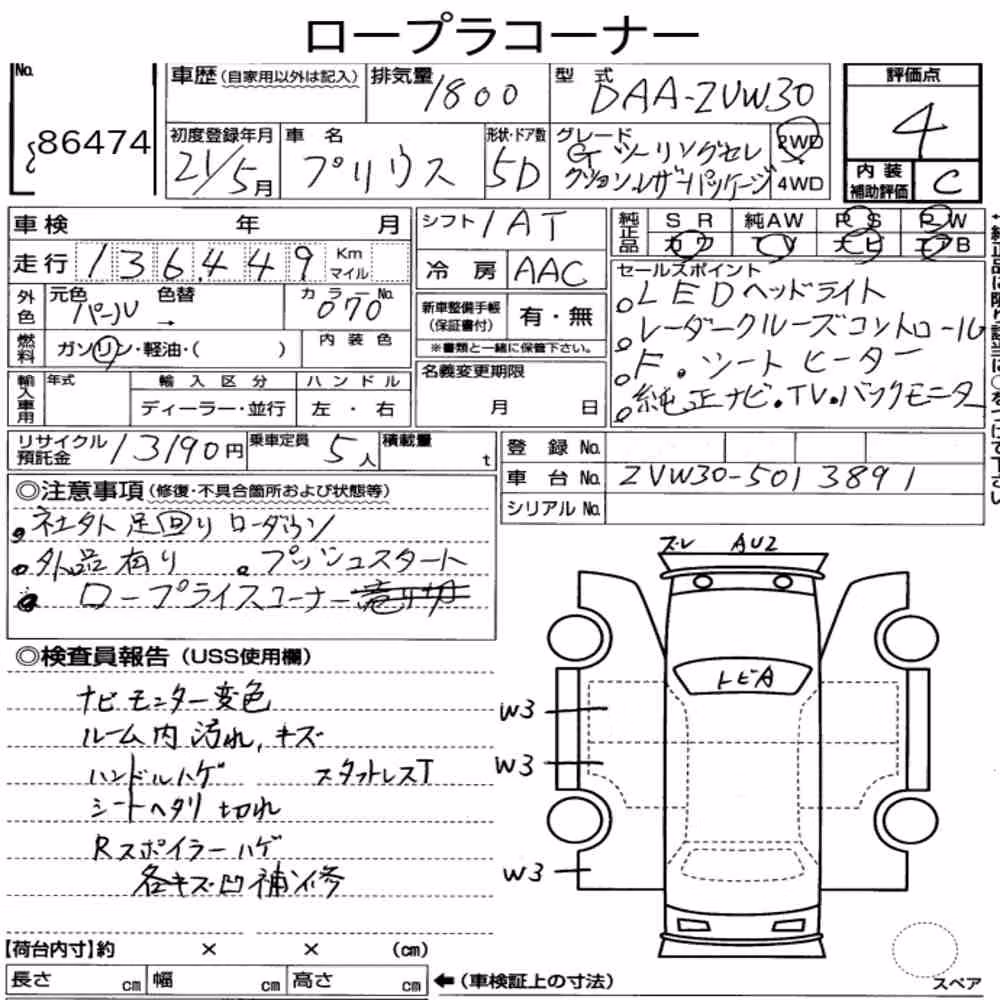 ロープラコーナー
No. 86474
車歴 (自家用以外は記入) 排気量 1800 型式 DAA-ZVW30 評価点 4
初度登録年月 21/5月 車名 プリウス 形状・ドア数 5D グレード Gツーリングセレクションレザーパッケージ 2WD 4WD 内装補助評価 C
車検 年 月
走行 136,449 Km マイル
外色 元色 パール 色替 → カラーNo. 070
燃料 ガソリン・軽油・( ) 内装色
輸入車用 年式 輸入区分 ハンドル
ディーラー・並行 左・右
シフト IAT
冷房 AAC
新車整備手帳 (保証書付) 有・無
※書類と一緒に保管下さい。
名義変更期限
月 日
純正品 SR 純AW PS PW
カワ TV ナビ エアB
セールスポイント
LEDヘッドライト
レーダークルーズコントロール
F.シートヒーター
純正ナビ.TV.バックモニター
←純正品に限り該当に○をつけて下さい
リサイクル預託金 13190円 乗車定員 5人 積載量 t
登録No.
車台No. ZVW30-5013891
シリアルNo.
◎注意事項 (修復・不具合箇所および状態等)
社外足回りローダウン
外品有り プッシュスタート
ロープライスコーナー売り切
◎検査員報告 (USS使用欄)
ナビモニター変色
ルーム内汚れ,キズ
ハンドルハゲ スタットレスT
シートヘタリ切れ
Rスポイラーハゲ
各キズ凹補修
ズレ AU2
トビA
W3
W3
W3
【荷台内寸】約 × × (cm)
長さ cm 幅 cm 高さ cm ←(車検証上の寸法)
スペア